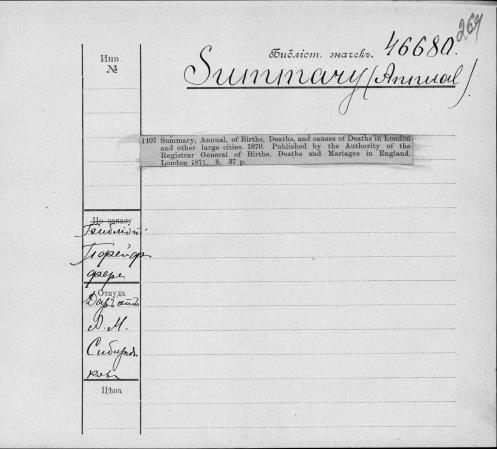 269
Инв.
№
Библіот. значекъ. 46680.
Summary (Annual).
1107 Summary, Annual, of Births, Deaths, and causes of Deaths in London
and other large cities. 1870. Published by the Authority of the
Registrar General of Births, Deaths and Mariages in England.
London 1871. 8. 37 p.
По заказу
Библіот.
Порейф
фера
Откуда
Даръ отъ
А. М.
Сибиря
кова
Цѣна